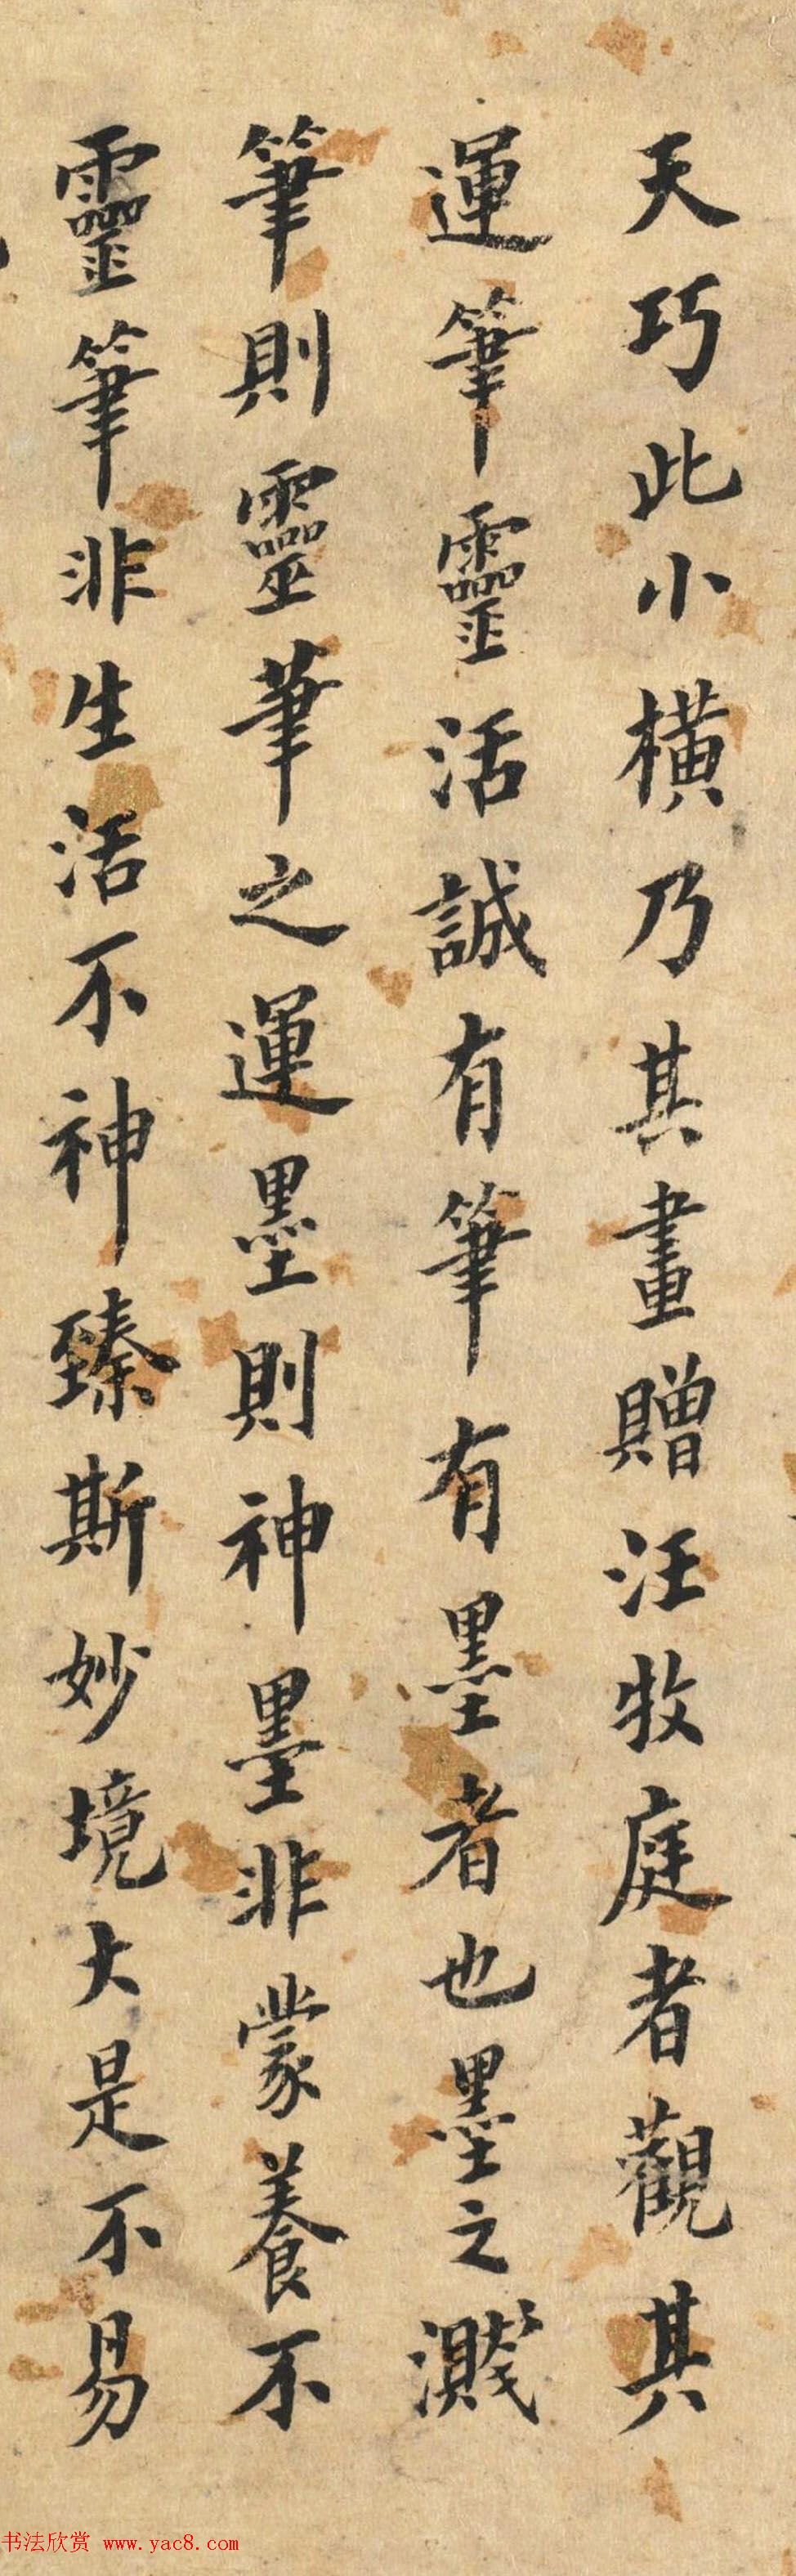 天巧此小橫乃其畫贈汪牧庭者觀其
運筆靈活誠有筆有墨者也墨之濺
筆則靈筆之運墨則神墨非蒙養不
靈筆非生活不神臻斯妙境大是不易
书法欣赏 www.yac8.com